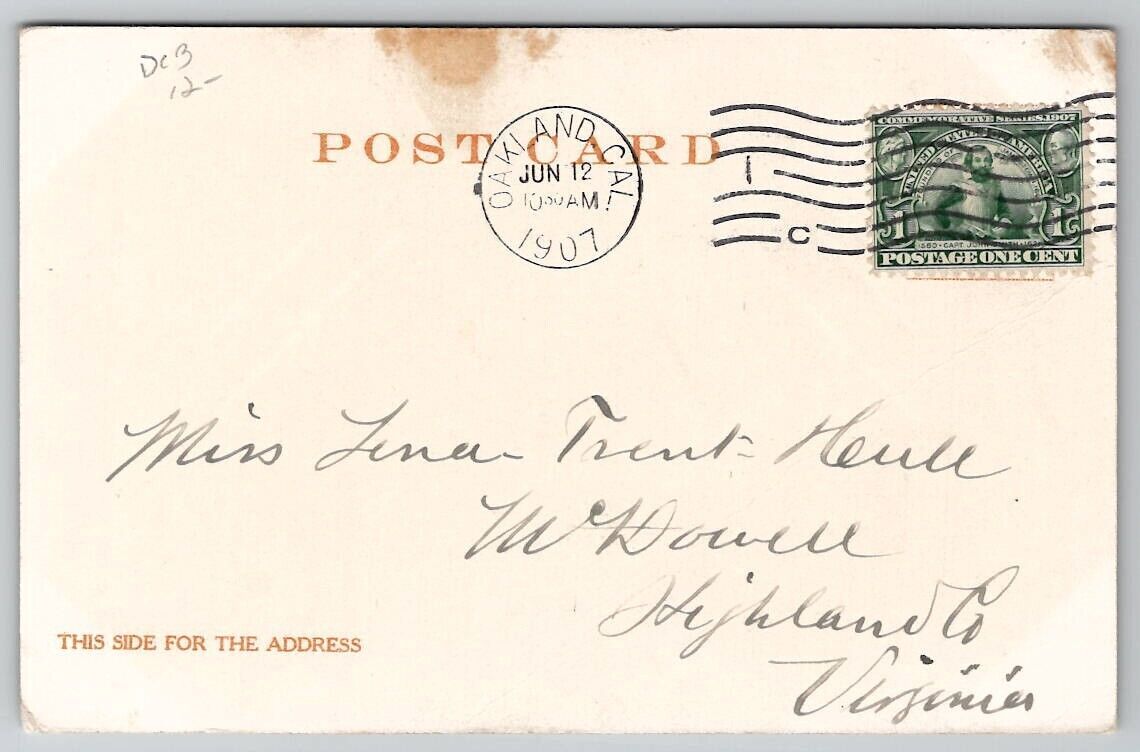 DCB
12-
POST CARD
OAKLAND, CAL.
JUN 12
1030 AM
1907
1
C
COMMEMORATIVE SERIES, 1907
UNITED STATES OF AMERICA
1 1C
1580 · CAPT. JOHN SMITH · 1631
POSTAGE ONE CENT
Miss Lena Trent Hull
McDowell
Highland Co
Virginia
THIS SIDE FOR THE ADDRESS